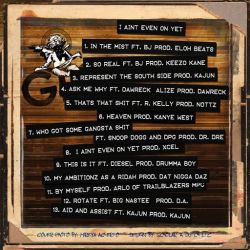 I AINT EVEN ON YET
1. IN THE MIST FT. BJ PROD. ELOH BEATS
2. SO REAL FT. BJ PROD. KEEZO KANE
3. REPRESENT THE SOUTH SIDE PROD. KAJUN
4. ASK ME WHY FT. DAWRECK ALIZE PROD. DAWRECK
5. THATS THAT SHIT FT. R. KELLY PROD. NOTTZ
6. HEAVEN PROD. KANYE WEST
7. WHO GOT SOME GANGSTA SHIT
FT. SNOOP DOGG AND DPG PROD. DR. DRE
8. I AINT EVEN ON YET PROD. XCEL
9. THIS IS IT FT. DIESEL PROD. DRUMMA BOY
10. MY AMBITIONZ AS A RIDAH PROD. DAT NIGGA DAZ
11. BY MYSELF PROD. ARLO OF TRAILBLAZERS MPG
12. ROTATE FT. BIG NASTEE PROD. D.A.
13. AID AND ASSIST FT. KAJUN PROD. KAJUN
G
COVER PHOTO BY: